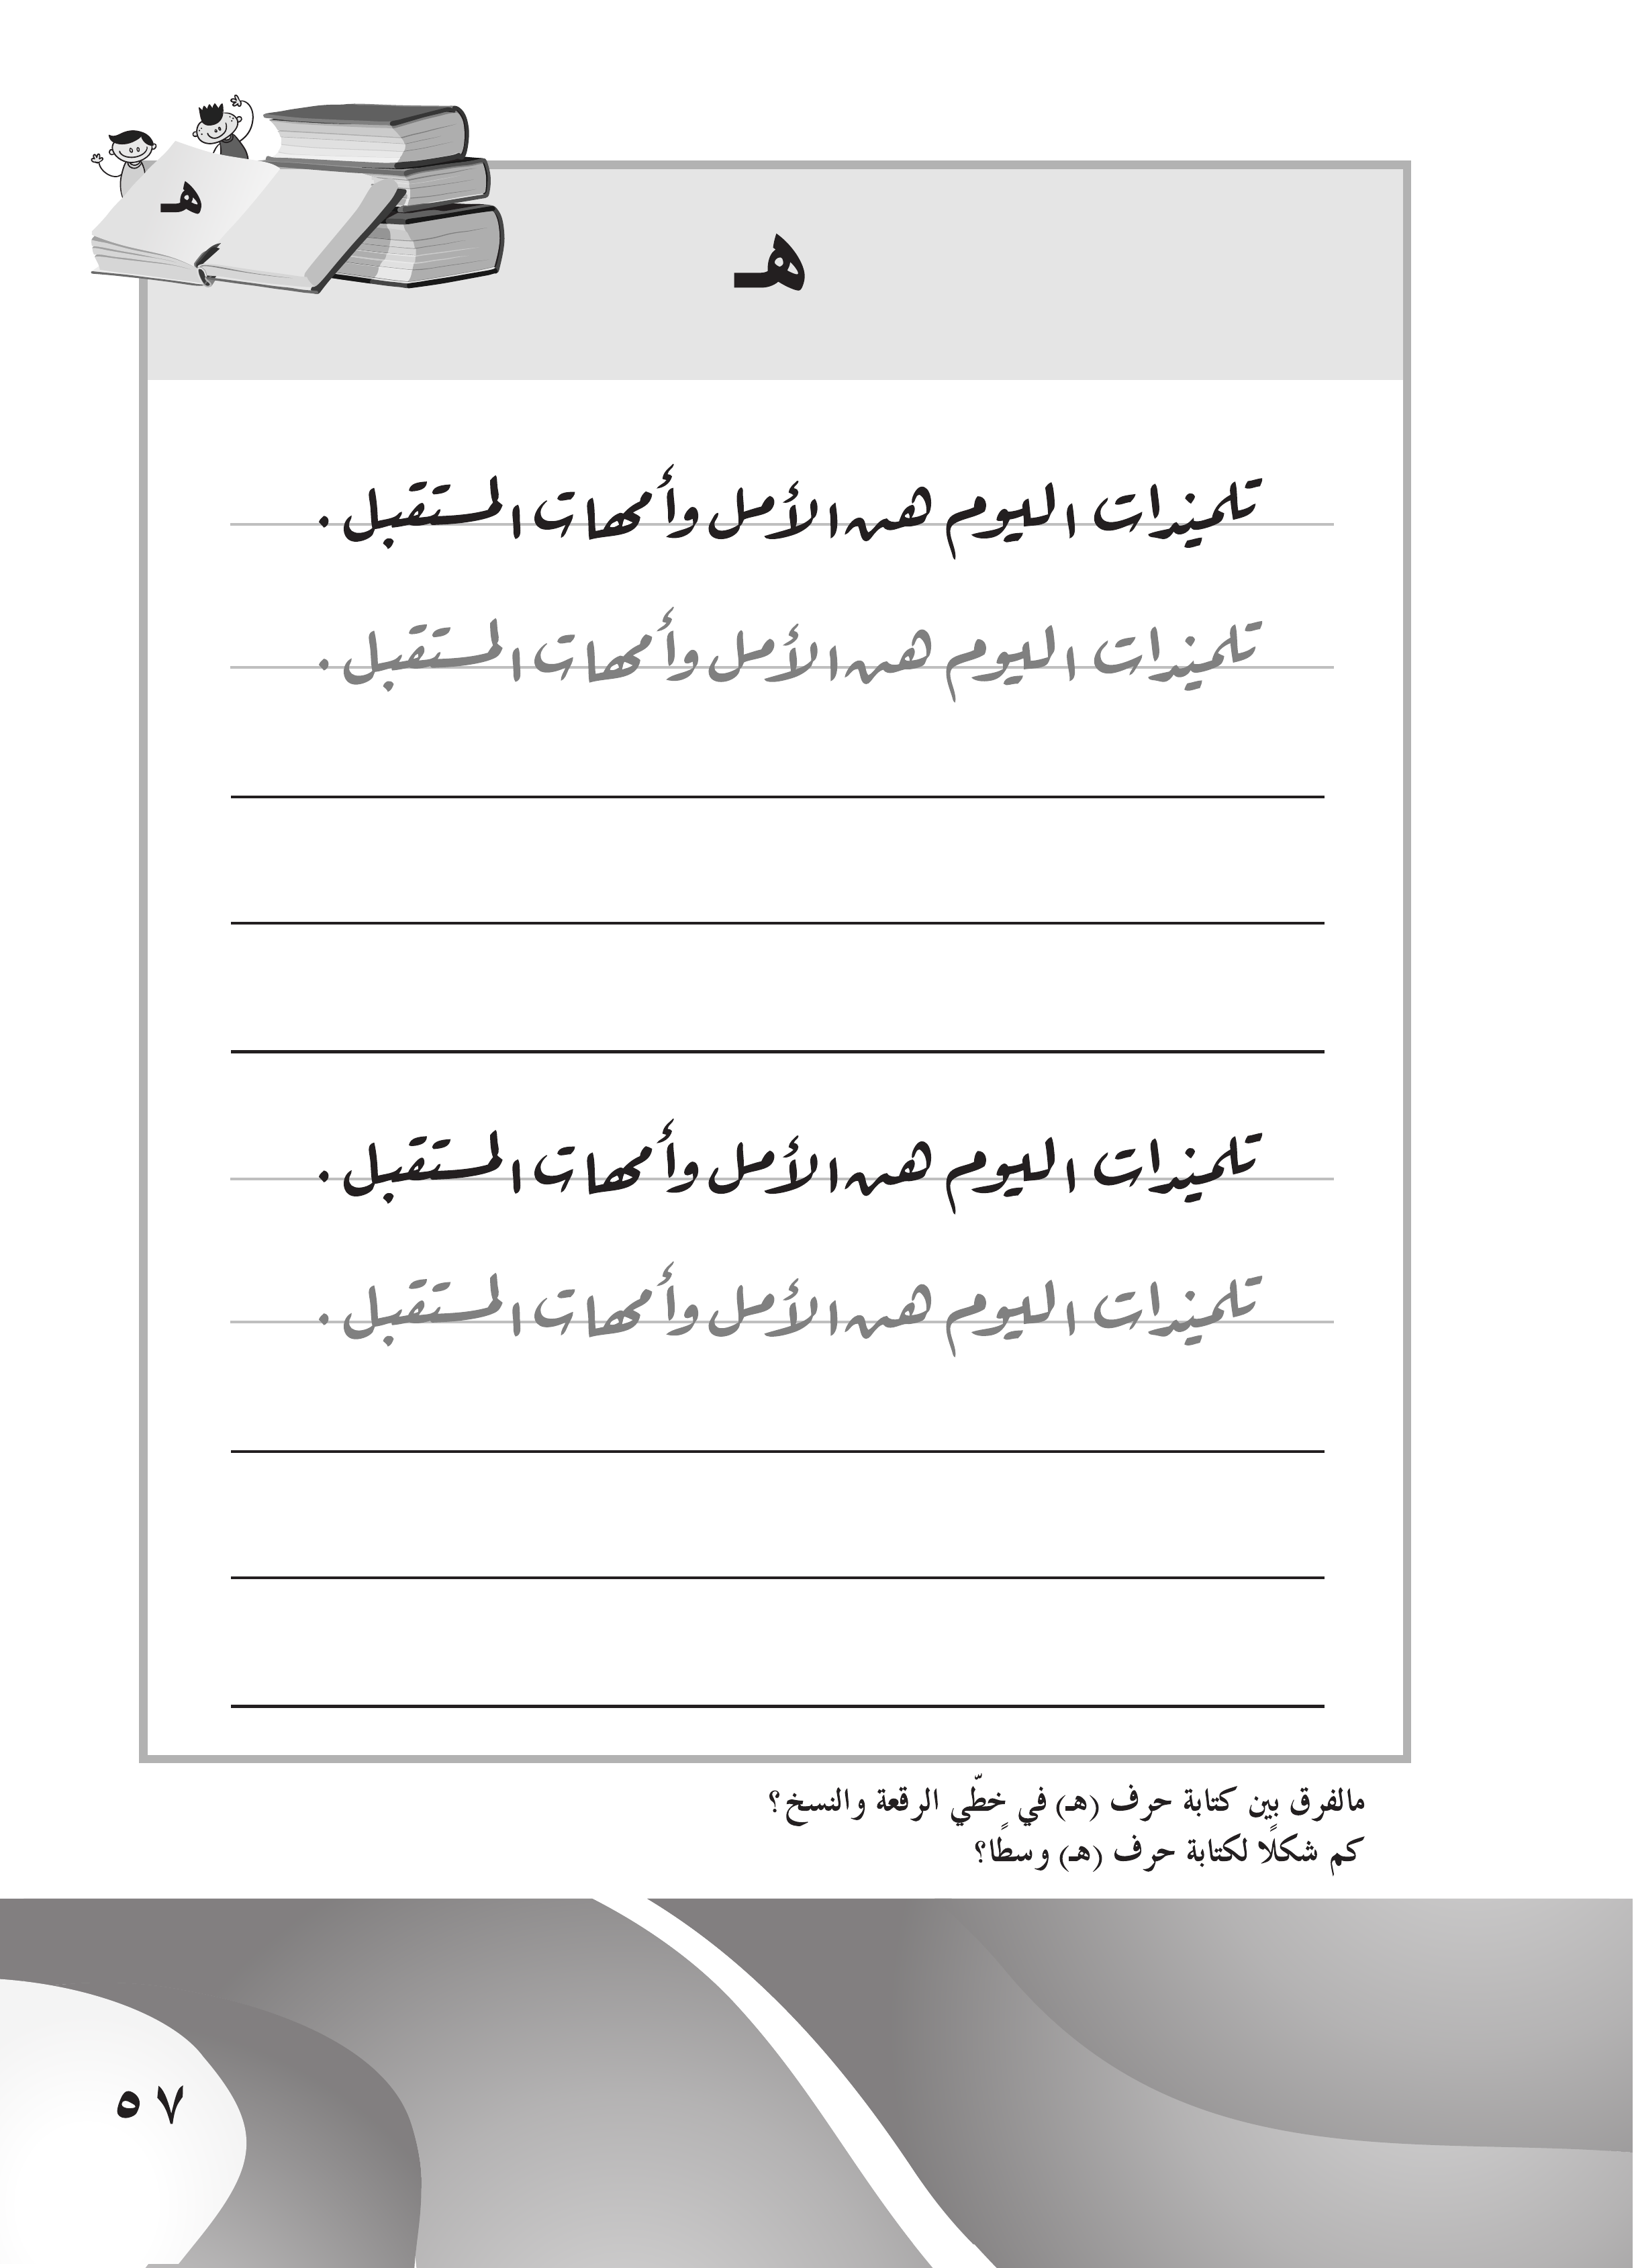 هـ
هـ
تلميذات اليوم هن الأمل وأمهات المستقبل .
تلميذات اليوم هن الأمل وأمهات المستقبل .
تلميذات اليوم هن الأمل وأمهات المستقبل .
تلميذات اليوم هن الأمل وأمهات المستقبل .
مالفرق بين كتابة حرف (هـ) في خطّي الرقعة والنسخ؟
كم شكلًا لكتابة حرف (هـ) وسطًا؟
٥٧